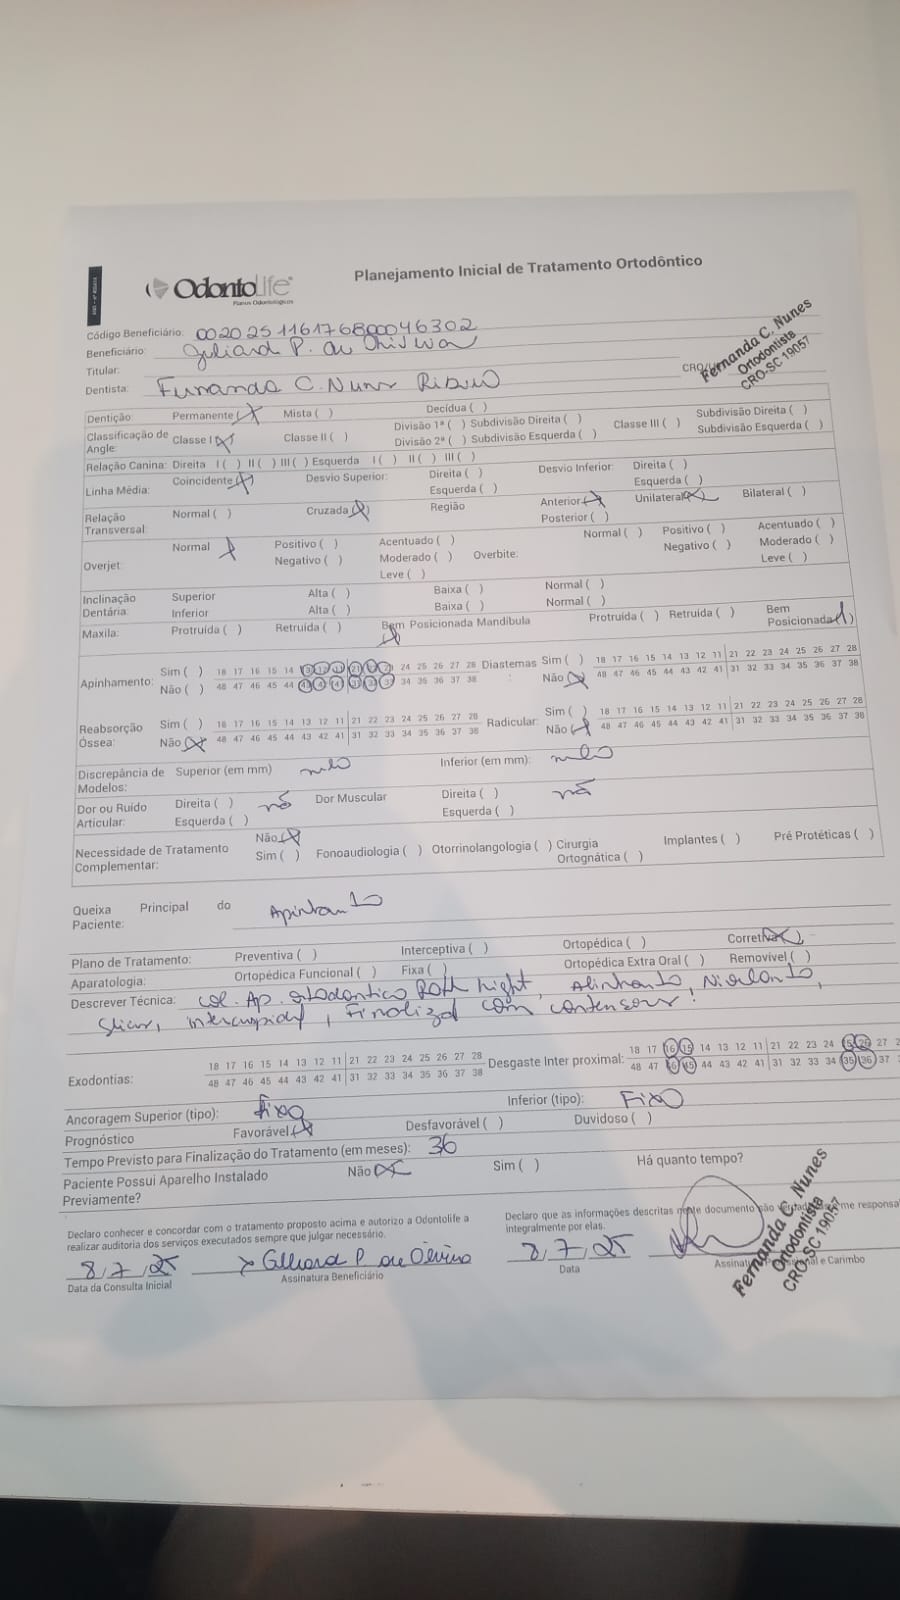 OdontoLife
Planos Odontológicos
Planejamento Inicial de Tratamento Ortodôntico
Código Beneficiário: 00202511617680046302
Beneficiário: P. de
Titular:
Dentista: Fernanda C. Nunes
CRO/
Fernanda C. Nunes
Ortodontista
CRO-SC 19057
Dentição: Permanente (X) Mista ( ) Decídua ( )
Classificação de Angle: Classe I (X) Classe II ( ) Divisão 1ª ( ) Subdivisão Direita ( ) Classe III ( ) Subdivisão Direita ( )
Divisão 2ª ( ) Subdivisão Esquerda ( ) Subdivisão Esquerda ( )
Relação Canina: Direita I ( ) II ( ) III ( ) Esquerda I ( ) II ( ) III ( )
Linha Média: Coincidente (X) Desvio Superior: Direita ( ) Desvio Inferior: Direita ( )
Esquerda ( ) Esquerda ( )
Relação Transversal: Normal ( ) Cruzada (X) Região Anterior (X) Unilateral (X) Bilateral ( )
Posterior ( )
Overjet: Normal X Positivo ( ) Acentuado ( ) Overbite: Normal ( ) Positivo ( ) Acentuado ( )
Negativo ( ) Moderado ( ) Negativo ( ) Moderado ( )
Leve ( ) Leve ( )
Inclinação Dentária: Superior Alta ( ) Baixa ( ) Normal ( )
Inferior Alta ( ) Baixa ( ) Normal ( )
Maxila: Protruída ( ) Retruída ( ) Bem Posicionada Mandíbula Protruída ( ) Retruída ( ) Bem Posicionada ( )
Apinhamento: Sim ( ) 18 17 16 15 14 13 12 11 21 22 23 24 25 26 27 28 Diastemas: Sim ( ) 18 17 16 15 14 13 12 11 21 22 23 24 25 26 27 28
Não ( ) 48 47 46 45 44 43 42 41 31 32 33 34 35 36 37 38 Não (X) 48 47 46 45 44 43 42 41 31 32 33 34 35 36 37 38
Reabsorção Óssea: Sim ( ) 18 17 16 15 14 13 12 11 21 22 23 24 25 26 27 28 Radicular: Sim ( ) 18 17 16 15 14 13 12 11 21 22 23 24 25 26 27 28
Não (X) 48 47 46 45 44 43 42 41 31 32 33 34 35 36 37 38 Não (X) 48 47 46 45 44 43 42 41 31 32 33 34 35 36 37 38
Discrepância de Modelos: Superior (em mm) Inferior (em mm):
Dor ou Ruído Articular: Direita ( ) não Dor Muscular Direita ( ) não
Esquerda ( ) Esquerda ( )
Necessidade de Tratamento Complementar: Não (X)
Sim ( ) Fonoaudiologia ( ) Otorrinolangologia ( ) Cirurgia Ortognática ( ) Implantes ( ) Pré Protéticas ( )
Queixa Principal do Paciente:
Plano de Tratamento: Preventiva ( ) Interceptiva ( ) Ortopédica ( ) Corretiva (X)
Aparatologia: Ortopédica Funcional ( ) Fixa ( ) Ortopédica Extra Oral ( ) Removível ( )
Descrever Técnica: col. Ap. ortodontico Roth
Finalizar com
Exodontias: 18 17 16 15 14 13 12 11 21 22 23 24 25 26 27 28 Desgaste Inter proximal: 18 17 16 15 14 13 12 11 21 22 23 24 25 26 27
48 47 46 45 44 43 42 41 31 32 33 34 35 36 37 38 48 47 46 45 44 43 42 41 31 32 33 34 35 36 37
Ancoragem Superior (tipo): fixo Inferior (tipo): Fixo
Prognóstico Favorável (X) Desfavorável ( ) Duvidoso ( )
Tempo Previsto para Finalização do Tratamento (em meses): 36
Paciente Possui Aparelho Instalado Previamente? Não (X) Sim ( ) Há quanto tempo?
Declaro conhecer e concordar com o tratamento proposto acima e autorizo a Odontolife a
realizar auditoria dos serviços executados sempre que julgar necessário.
Declaro que as informações descritas neste documento são me
integralmente por elas.
8/7/25
Data da Consulta Inicial
P. de
Assinatura Beneficiário
8/7/25
Data
e Carimbo
Fernanda C. Nunes
Ortodontista
CRO-SC 19057